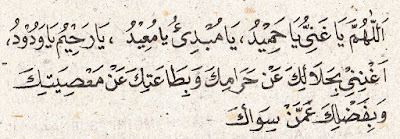 اَللّٰهُمَّ يَا غَنِيُّ يَا حَمِيْدُ، يَا مُبْدِئُ يَا مُعِيْدُ، يَا رَحِيْمُ يَا وَدُوْدُ،
اَغْنِنِيْ بِحَلَالِكَ عَنْ حَرَامِكَ وَبِطَاعَتِكَ عَنْ مَعْصِيَتِكَ
وَبِفَضْلِكَ عَمَّنْ سِوَاكَ